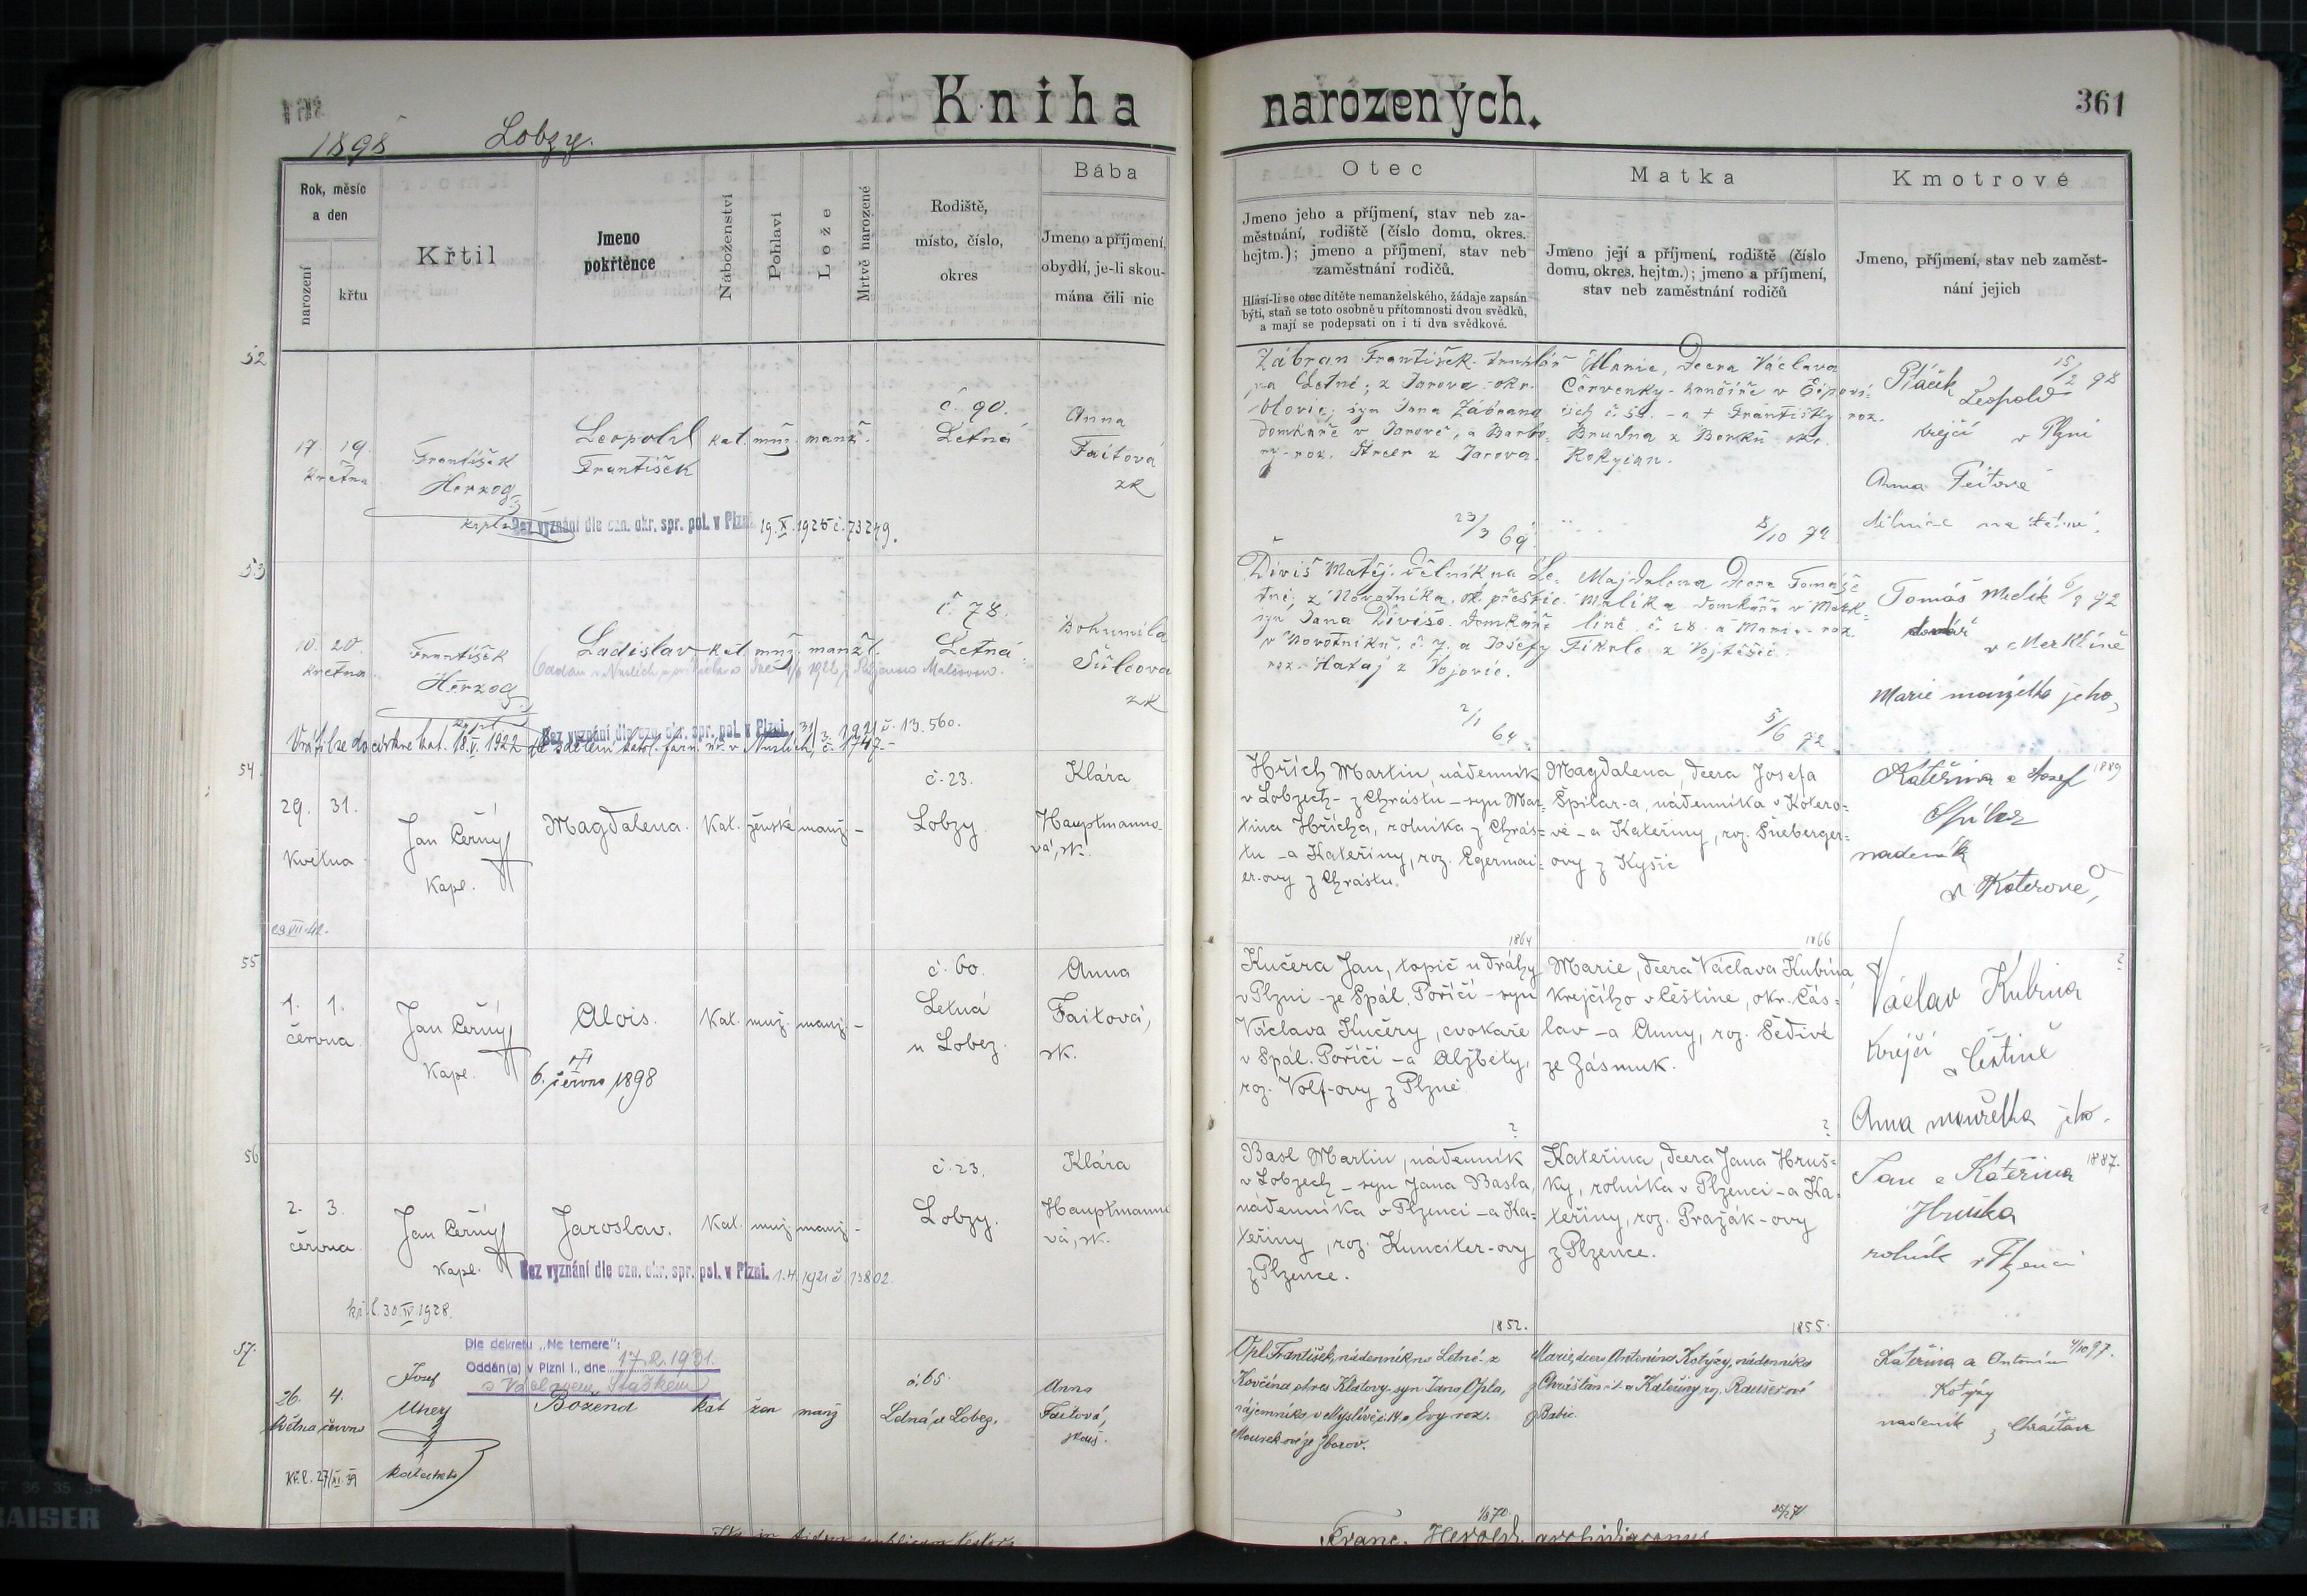 Kniha narozených.
361
1898 Lobzy.
Rok, měsíc
a den
narození
křtu
Křtil
Jmeno
pokřtěnce
Náboženství
Pohlaví
Lože
Mrtvě narozené
Rodiště,
místo, číslo,
okres
Bába
Jmeno a příjmení,
obydlí, je-li skou-
mána čili nic
Otec
Jmeno jeho a příjmení, stav neb za-
městnání, rodiště (číslo domu, okres.
hejtm.); jmeno a příjmení, stav neb
zaměstnání rodičů.
Hlásí-li se otec dítěte nemanželského, žádaje zapsán
býti, staň se toto osobně u přítomnosti dvou svědků,
a mají se podepsati on i ti dva svědkové.
Matka
Jmeno její a příjmení, rodiště (číslo
domu, okres. hejtm.); jmeno a příjmení,
stav neb zaměstnání rodičů
Kmotrové
Jmeno, příjmení, stav neb zaměst-
nání jejich
52
17. 19.
května
František
Herzog
kapl.
Leopold
František
kat. muž. manž.
č. 90.
Letná
Anna
Faitová
zk
Bez vyznání dle ozn. okr. spr. pol. v Plzni 19.X.1925 č. 73249.
Zábran František truhlář
na Letné; z Jarova okr.
Blovic; syn Jana Zábrana
domkáře v Jarově, a Barbo-
ry roz. z Jarova.
23/3 69
Marie, dcera Václava
Červenky
č. 52. - a † Františky roz.
z Borku okr.
Rokycan.
8/10 72
Ptáček 15/2 98
Leopold
krejčí v Plzni
Anna
na Letné.
53
10. 20.
května
František
Herzog
Ladislav kat. muž. manžl.
č. 78.
Letná
Bohumila
Šulcova
zk
Bez vyznání dle ozn. okr. spr. pol. v Plzni. 31/3. 1921 č. 13.560.
Vrátil se do církve kat. 18.V.1922 v Nuslích, č. 1747.
Diviš Matěj. na Le-
tné; z Novotníka. ok. přeštic.
syn Jana Diviše. domkáře
v Novotníku. č. 7. a Josefy
roz. Hataj z Vojovic.
2/1 64
Majdalena dcera Tomáše
domkáře v Merk-
líně č. 28. a Marie roz.
Fikrle z Vojtěšic.
5/6 72
Tomáš 6/9 92
v Merklíně
Marie manželka jeho,
54.
29. 31.
května
Jan Černý
Kapl.
Magdalena. Kat. ženské manž. -
č. 23.
Lobzy
Klára
Hauptmanno-
vá, zk.
29.VII.42.
Hřích Martin, nádenník
v Lobzech - z Chrástu - syn Mar-
tina Hřícha, rolníka z Chrás-
tu - a Kateřiny, roz. Egermai-
er-ovy z Chrástu.
1864
Magdalena, dcera Josefa
Špilar-a, nádenníka v Kotero-
vě - a Kateřiny, roz. Šneberger-
ovy z Kyšic
1866
Kateřina a Josef 1889
Špilar
nadeník
v Koterove
55
1. 1.
června
Jan Černý
Kapl.
Alois.
6. června 1898
Kat. muž. manž. -
č. 60.
Letná
u Lobez.
Anna
Faitová,
zk.
Kučera Jan, topič u dráhy
v Plzni - ze Spál. Poříčí - syn
Václava Kučery, cvokaře
v Spál. Poříčí - a Alžběty,
roz. Volf-ovy z Plzně.
?
Marie, dcera Václava Kubína,
krejčího v Čestíně, okr. Čás-
lav - a Anny, roz. Šedivé
ze Zásmuk.
?
Václav Kubina ?
Krejčí
v Čestíně
Anna manželka jeho.
56
2. 3.
června
Jan Černý
Kapl.
Jaroslav. Kat. muž. manž. -
č. 23.
Lobzy.
Klára
Hauptmanno-
vá, zk.
Bez vyznání dle ozn. okr. spr. pol. v Plzni. 1.4.1921 č. 13802.
kř. l. 30.IV.1928.
Basl Martin, nádenník
v Lobzech - syn Jana Basla,
nádenníka v Plzenci - a Ka-
teřiny, roz. Kunciter-ovy
z Plzence.
1852.
Kateřina, dcera Jana Hruš-
ky, rolníka v Plzenci - a Ka-
teřiny, roz. Pražák-ovy
z Plzence.
1855.
Jan a Kateřina 1887.
Hruška
rolník v Plzenci
57.
Dle dekretu „Ne temere":
Oddán(a) v Plzni I., dne 17.2.1931.
s Václavem Staškem
26. 4.
května června
Josef
katecheta
Božena kat žen manž
č. 65
Letná u Lobez.
Anna
Faitová,
zkouš.
Kř. l. 27/XI.39
Opl František, nádenník na Letné z
Kovčína, okres Klatovy, syn Jana Opla,
nájemníka v Myslívě č. 14 a Evy roz.
Mourekové ze Zborov.
1/3 70.
Marie, dcera Antonína Kotýzy, nádenníka
z Chrášťan a Kateřiny roz. Raušerové
z Babic.
Kateřina a Antonín 4/10 97.
Kotýzy
nadeník z Chrášťan
Franc. Herold, archidiaconus